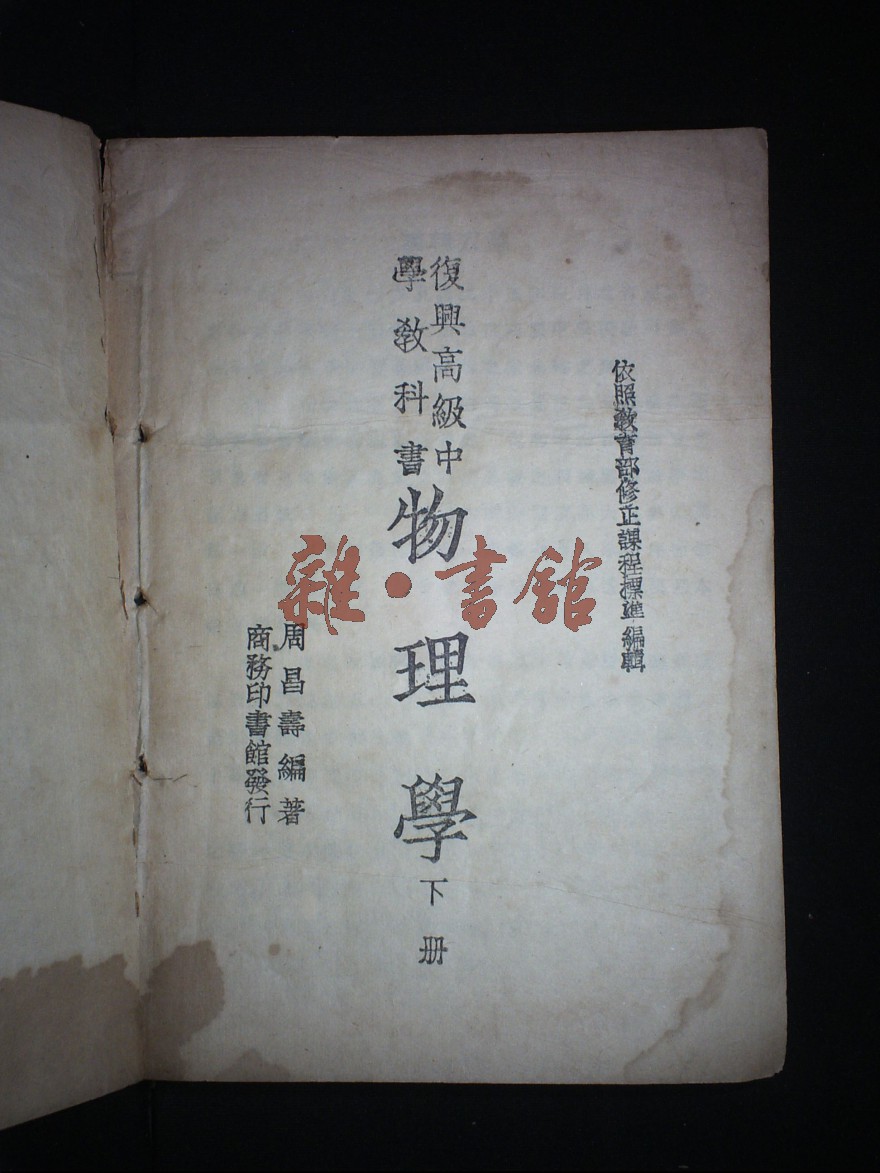 依照教育部修正課程標準編輯
復興高級中
學教科書
物理學
下册
周昌壽編著
商務印書館發行
雜·書館